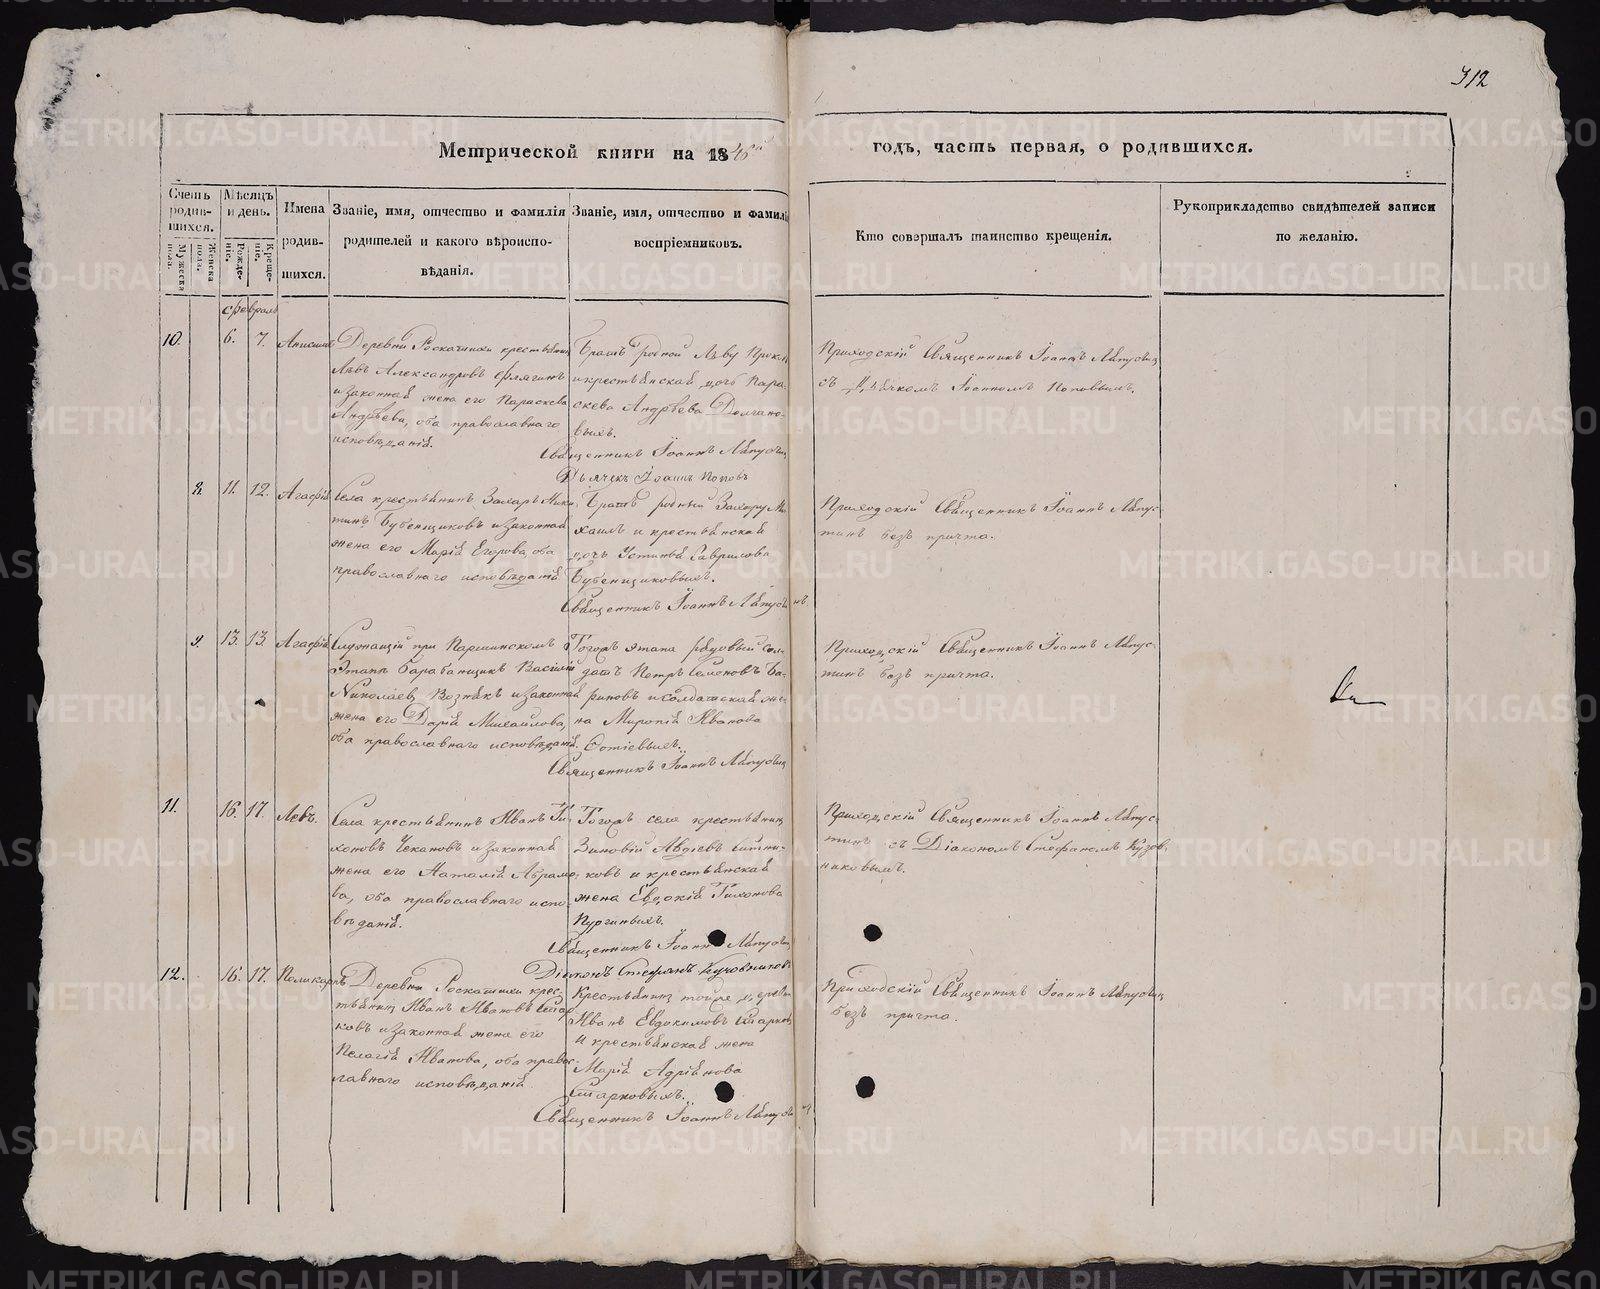 312
Метрической книги на 1846й годъ, часть первая, о родившихся.
Счетъ родив-шихся.
Мужеска пола.
Женска пола.
Мѣсяцъ и день.
Рожде-ніе.
Креще-ніе.
Имена родив-шихся.
Званіе, имя, отчество и фамилія
родителей и какого вѣроиспо-
вѣданія.
Званіе, имя, отчество и фамилія
воспріемниковъ.
Кто совершалъ таинство крещенія.
Рукоприкладство свидѣтелей записи
по желанію.
Февраль
10. 6. 7.
Деревни Роскатихи крестьянинъ
Левъ Александровъ
и законная жена его Параскева
Андрѣева, оба православнаго
исповѣданія.
Братъ родной Льву
и крестьянская дочь Пара-
скева Андрѣева Долгано-
выхъ.
Священникъ Іоаннъ
Дьячекъ Іоаннъ Поповъ
Приходскій Священникъ Іоаннъ
съ Дьячкомъ Іоанномъ Поповымъ.
8. 11. 12. Агафія
Села крестьянинъ Захаръ Ники-
тинъ Бубенщиковъ и законная
жена его Марія Егорова, оба
православнаго исповѣданія
Братъ родный Захару Ми-
хаилъ и крестьянская
дочь Устинья Гаврилова
Бубенщиковыхъ.
Священникъ Іоаннъ
Приходскій Священникъ Іоаннъ
безъ причта.
9. 13. 13. Агафія
Служащій при
Этапѣ Барабанщикъ Василій
Николаевъ и законная
жена его Дарія Михайлова,
оба православнаго исповѣданія.
Тогожъ этапа рядовый сол-
датъ Петръ Семеновъ Ба-
риновъ и солдатская же-
на Миропія Иванова
Священникъ Іоаннъ
Приходскій Священникъ Іоаннъ
безъ причта.
11. 16. 17. Левъ.
Села крестьянинъ Иванъ Ти-
хоновъ Чекановъ и законная
жена его Наталія Абрамо-
ва, оба православнаго испо-
вѣданія.
Тогожъ села крестьянинъ
Зиновій Авдіевъ Ситни-
ковъ и крестьянская
жена Евдокія Тихонова
Пургиныхъ.
Священникъ Іоаннъ
Діаконъ Стефанъ Кузовниковъ
Приходскій Священникъ Іоаннъ
съ Діакономъ Стефаномъ Кузов-
никовымъ.
12. 16. 17. Поликарпъ
Деревни Роскатихи крес-
тьянинъ Иванъ Ивановъ Стар-
ковъ и законная жена его
Пелагія Иванова, оба правос-
лавнаго исповѣданія
Крестьянинъ тойже деревни
Иванъ Евдокимовъ Старковъ
и крестьянская жена
Марія Адріянова
Старковыхъ.
Священникъ Іоаннъ
Приходскій Священникъ Іоаннъ
безъ причта.
METRIKI.GASO-URAL.RU